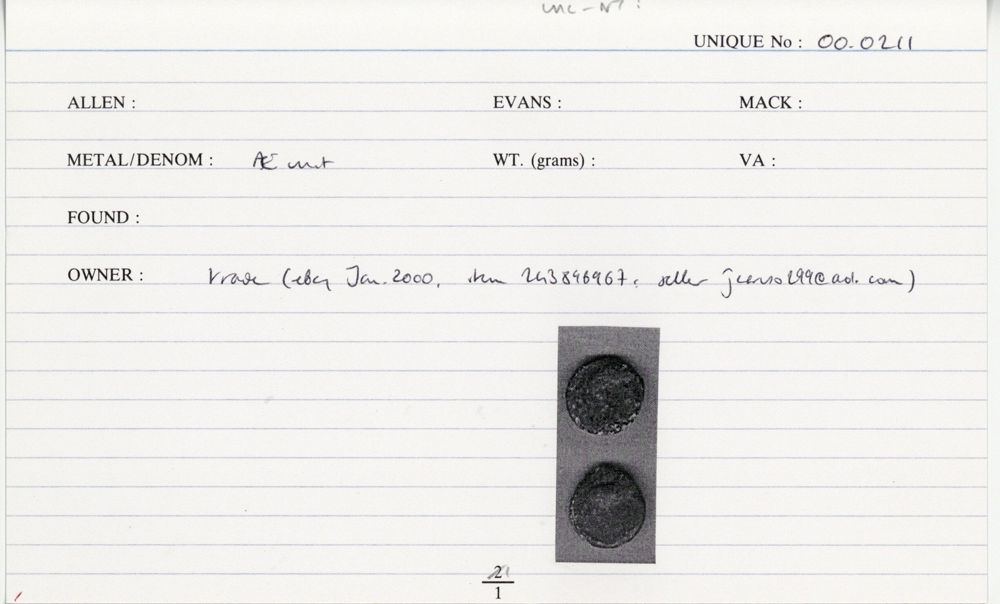 UNIQUE No : 00.0211
ALLEN : EVANS : MACK :
METAL/DENOM : Æ unit WT. (grams) : VA :
FOUND :
OWNER : trade (eBay Jan. 2000, item 243896967, seller
2
1